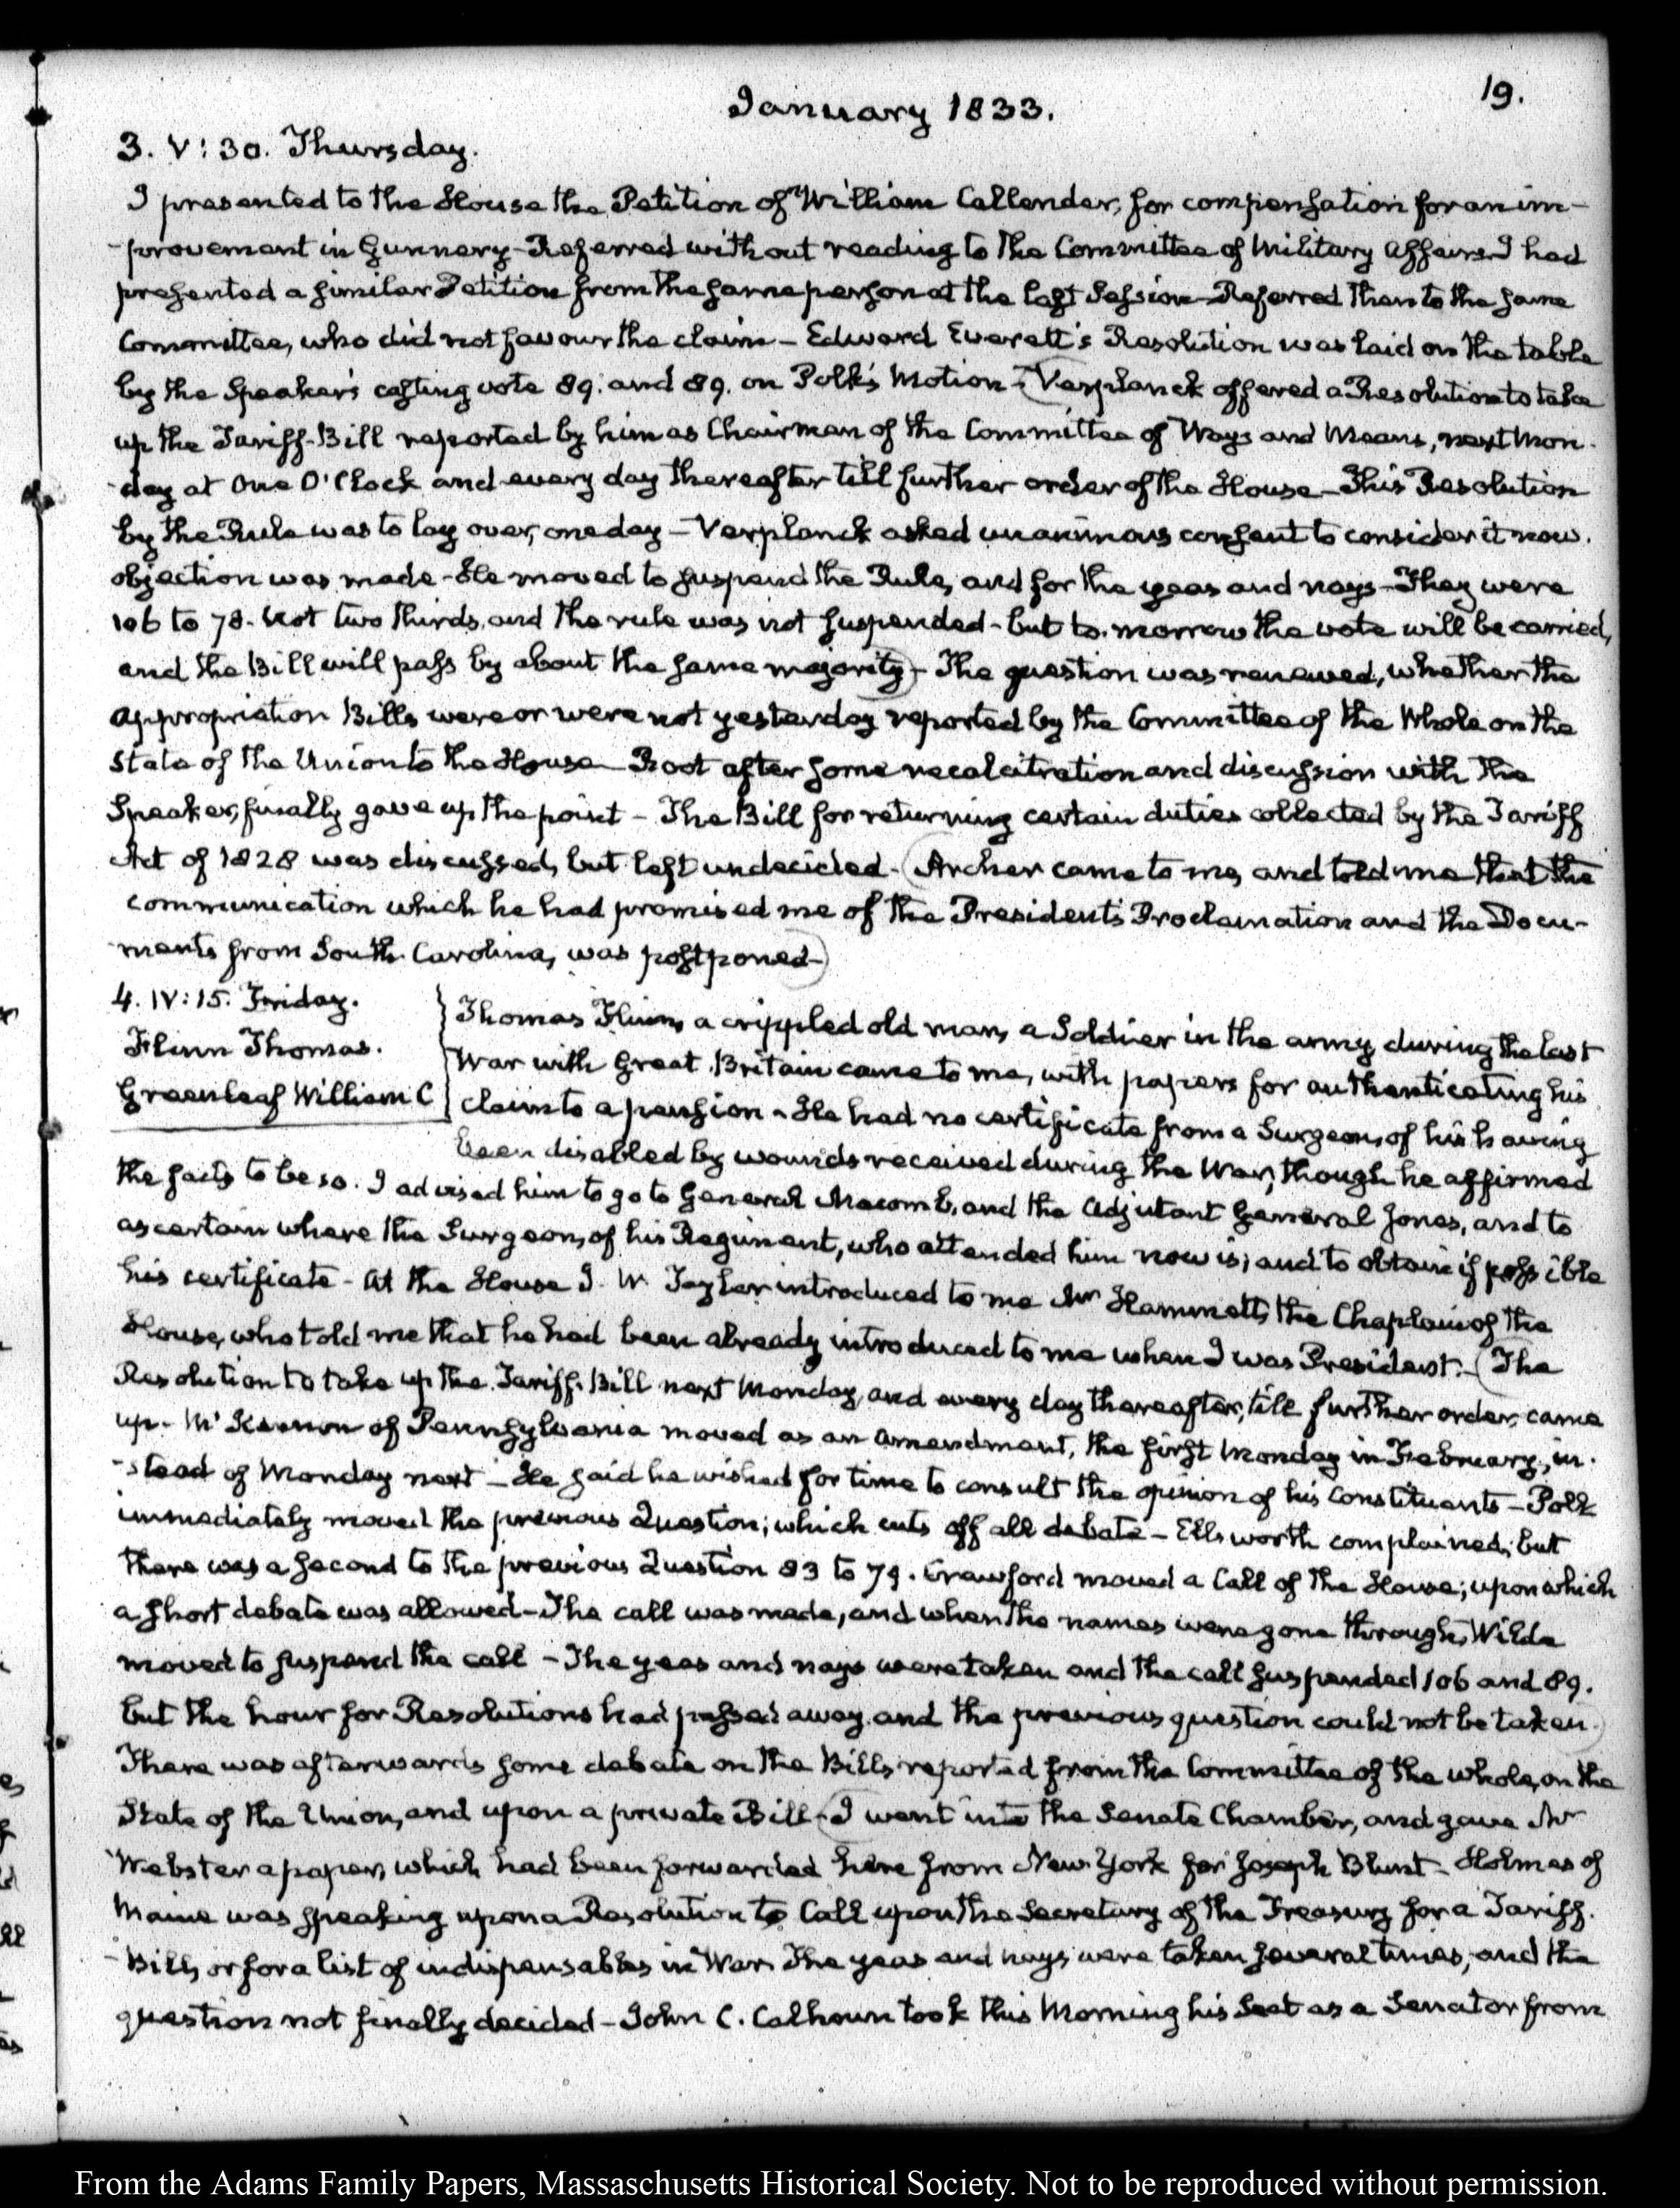 19.
January 1833.
3. V:30. Thursday.
I presented to the House the Petition of William Callender, for compensation for an im-
-provement in Gunnery - Referred without reading to the Committee of Military Affairs. I had
presented a similar Petition from the same person at the last Session - Referred then to the same
Committee, who did not favour the claim - Edward Everett's Resolution was laid on the table
by the Speaker's casting vote 89. and 89. on Polk's Motion - (Verplanck offered a Resolution to take
up the Tariff-Bill reported by him as Chairman of the Committee of Ways and Means, next Mon-
-day at One O'Clock and every day thereafter till further order of the House - This Resolution
by the Rule was to lay over, one day - Verplanck asked unanimous consent to consider it now.
objection was made - He moved to suspend the Rule, and for the yeas and nays - They were
106 to 78. Not two thirds, and the rule was not suspended - but to-morrow the vote will be carried,
and the Bill will pass by about the same majority) - The question was renewed, whether the
Appropriation Bills were or were not yesterday reported by the Committee of the Whole on the
State of the Union to the House - Root after some recalcitration and discussion with the
Speaker, finally gave up the point - The Bill for returning certain duties collected by the Tariff
Act of 1828 was discussed, but left undecided. (Archer came to me, and told me that the
communication which he had promised me of the President's Proclamation and the Docu-
-ments from South-Carolina, was postponed -)
4. IV:15. Friday.
Flinn Thomas.
Greenleaf William C
Thomas Flinn, a crippled old man, a Soldier in the army during the last
War with Great-Britain came to me, with papers for authenticating his
claim to a pension - He had no certificate from a Surgeon, of his having
been disabled by wounds received during the War, though he affirmed
the facts to be so. I advised him to go to General Macomb, and the Adjutant General Jones, and to
ascertain where the Surgeon, of his Regiment, who attended him now is; and to obtain if possible
his certificate - At the House J. W. Taylor introduced to me Mr Hammett, the Chaplain of the
House, who told me that he had been already introduced to me when I was President. - (The
Resolution to take up the Tariff-Bill next Monday, and every day thereafter, till further order, came
up - McKennan of Pennsylvania moved as an amendment, the first Monday in February, in-
-stead of Monday next - He said he wished for time to consult the opinion of his Constituents - Polk
immediately moved the previous Question; which cuts off all debate - Ellsworth complained, but
there was a second to the previous Question 83 to 79. Crawford moved a Call of the House; upon which
a short debate was allowed - The call was made, and when the names were gone through, Wilde
moved to suspend the call - The yeas and nays were taken and the call suspended 106 and 89.
but the hour for Resolutions had passed away, and the previous question could not be taken.)
There was afterwards some debate on the Bills reported from the Committee of the whole, on the
State of the Union, and upon a private Bill - (I went into the Senate Chamber, and gave Mr
Webster a paper, which had been forwarded here from New-York for Joseph Blunt - Holmes of
Maine was speaking upon a Resolution to Call upon the Secretary of the Treasury for a Tariff-
-Bill, or for a list of indispensables in War. The yeas and nays were taken several times, and the
question not finally decided - John C. Calhoun took this Morning his Seat as a Senator from
From the Adams Family Papers, Massachusetts Historical Society. Not to be reproduced without permission.